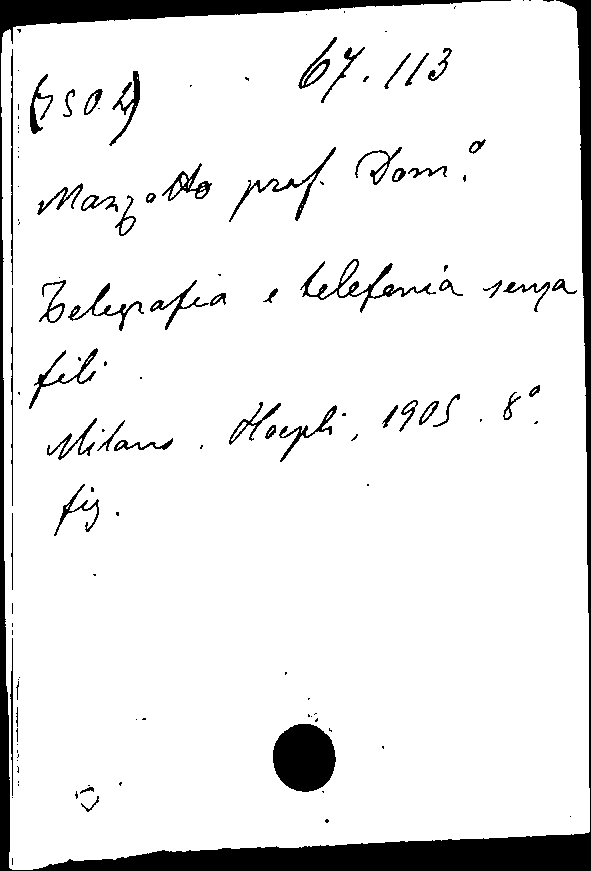 (7504) 67.113
Mazzotto prof. Dom.º
Telegrafia e telefonia senza
fili
Milano. Hoepli, 1905. 8º.
fig.